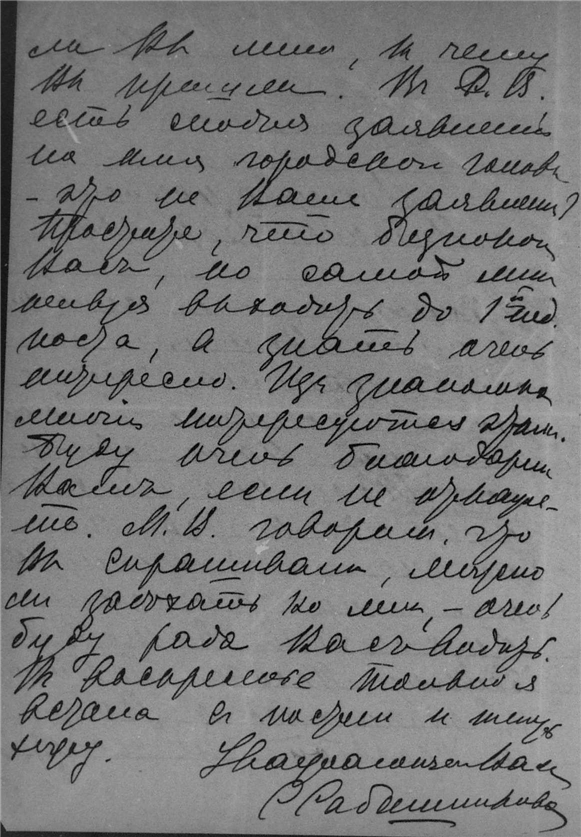 ли Вы мнѣ, къ чему
Вы пришли. Въ Д. В.
есть столько заявленій
на имя городской головы
- это не Ваше заявленіе?
Простите, что безпокою
Васъ, но самой мнѣ
нельзя выходить до 1й нед.
поста, а знать очень
интересно. Из знакомыхъ
многіе интересуются этимъ.
Буду очень благодарна
Вамъ, если не откаже-
те. М. В. говорилъ, что
Вы спрашивали, можно
ли заѣхать ко мнѣ, - очень
буду рада Васъ видѣть.
Въ воскресенье только я
встала съ постели и теперь
хожу. Уважающая Вас
С. Сабашникова